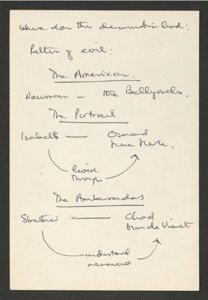 where does the
Pattern of evil:
The American.
Newman — the Bellegardes.
The Portrait
Isabel — Osmond
Mme Merle.
lived through
The Ambassadors
Strether — Chad
Mme de Vionnet
understand